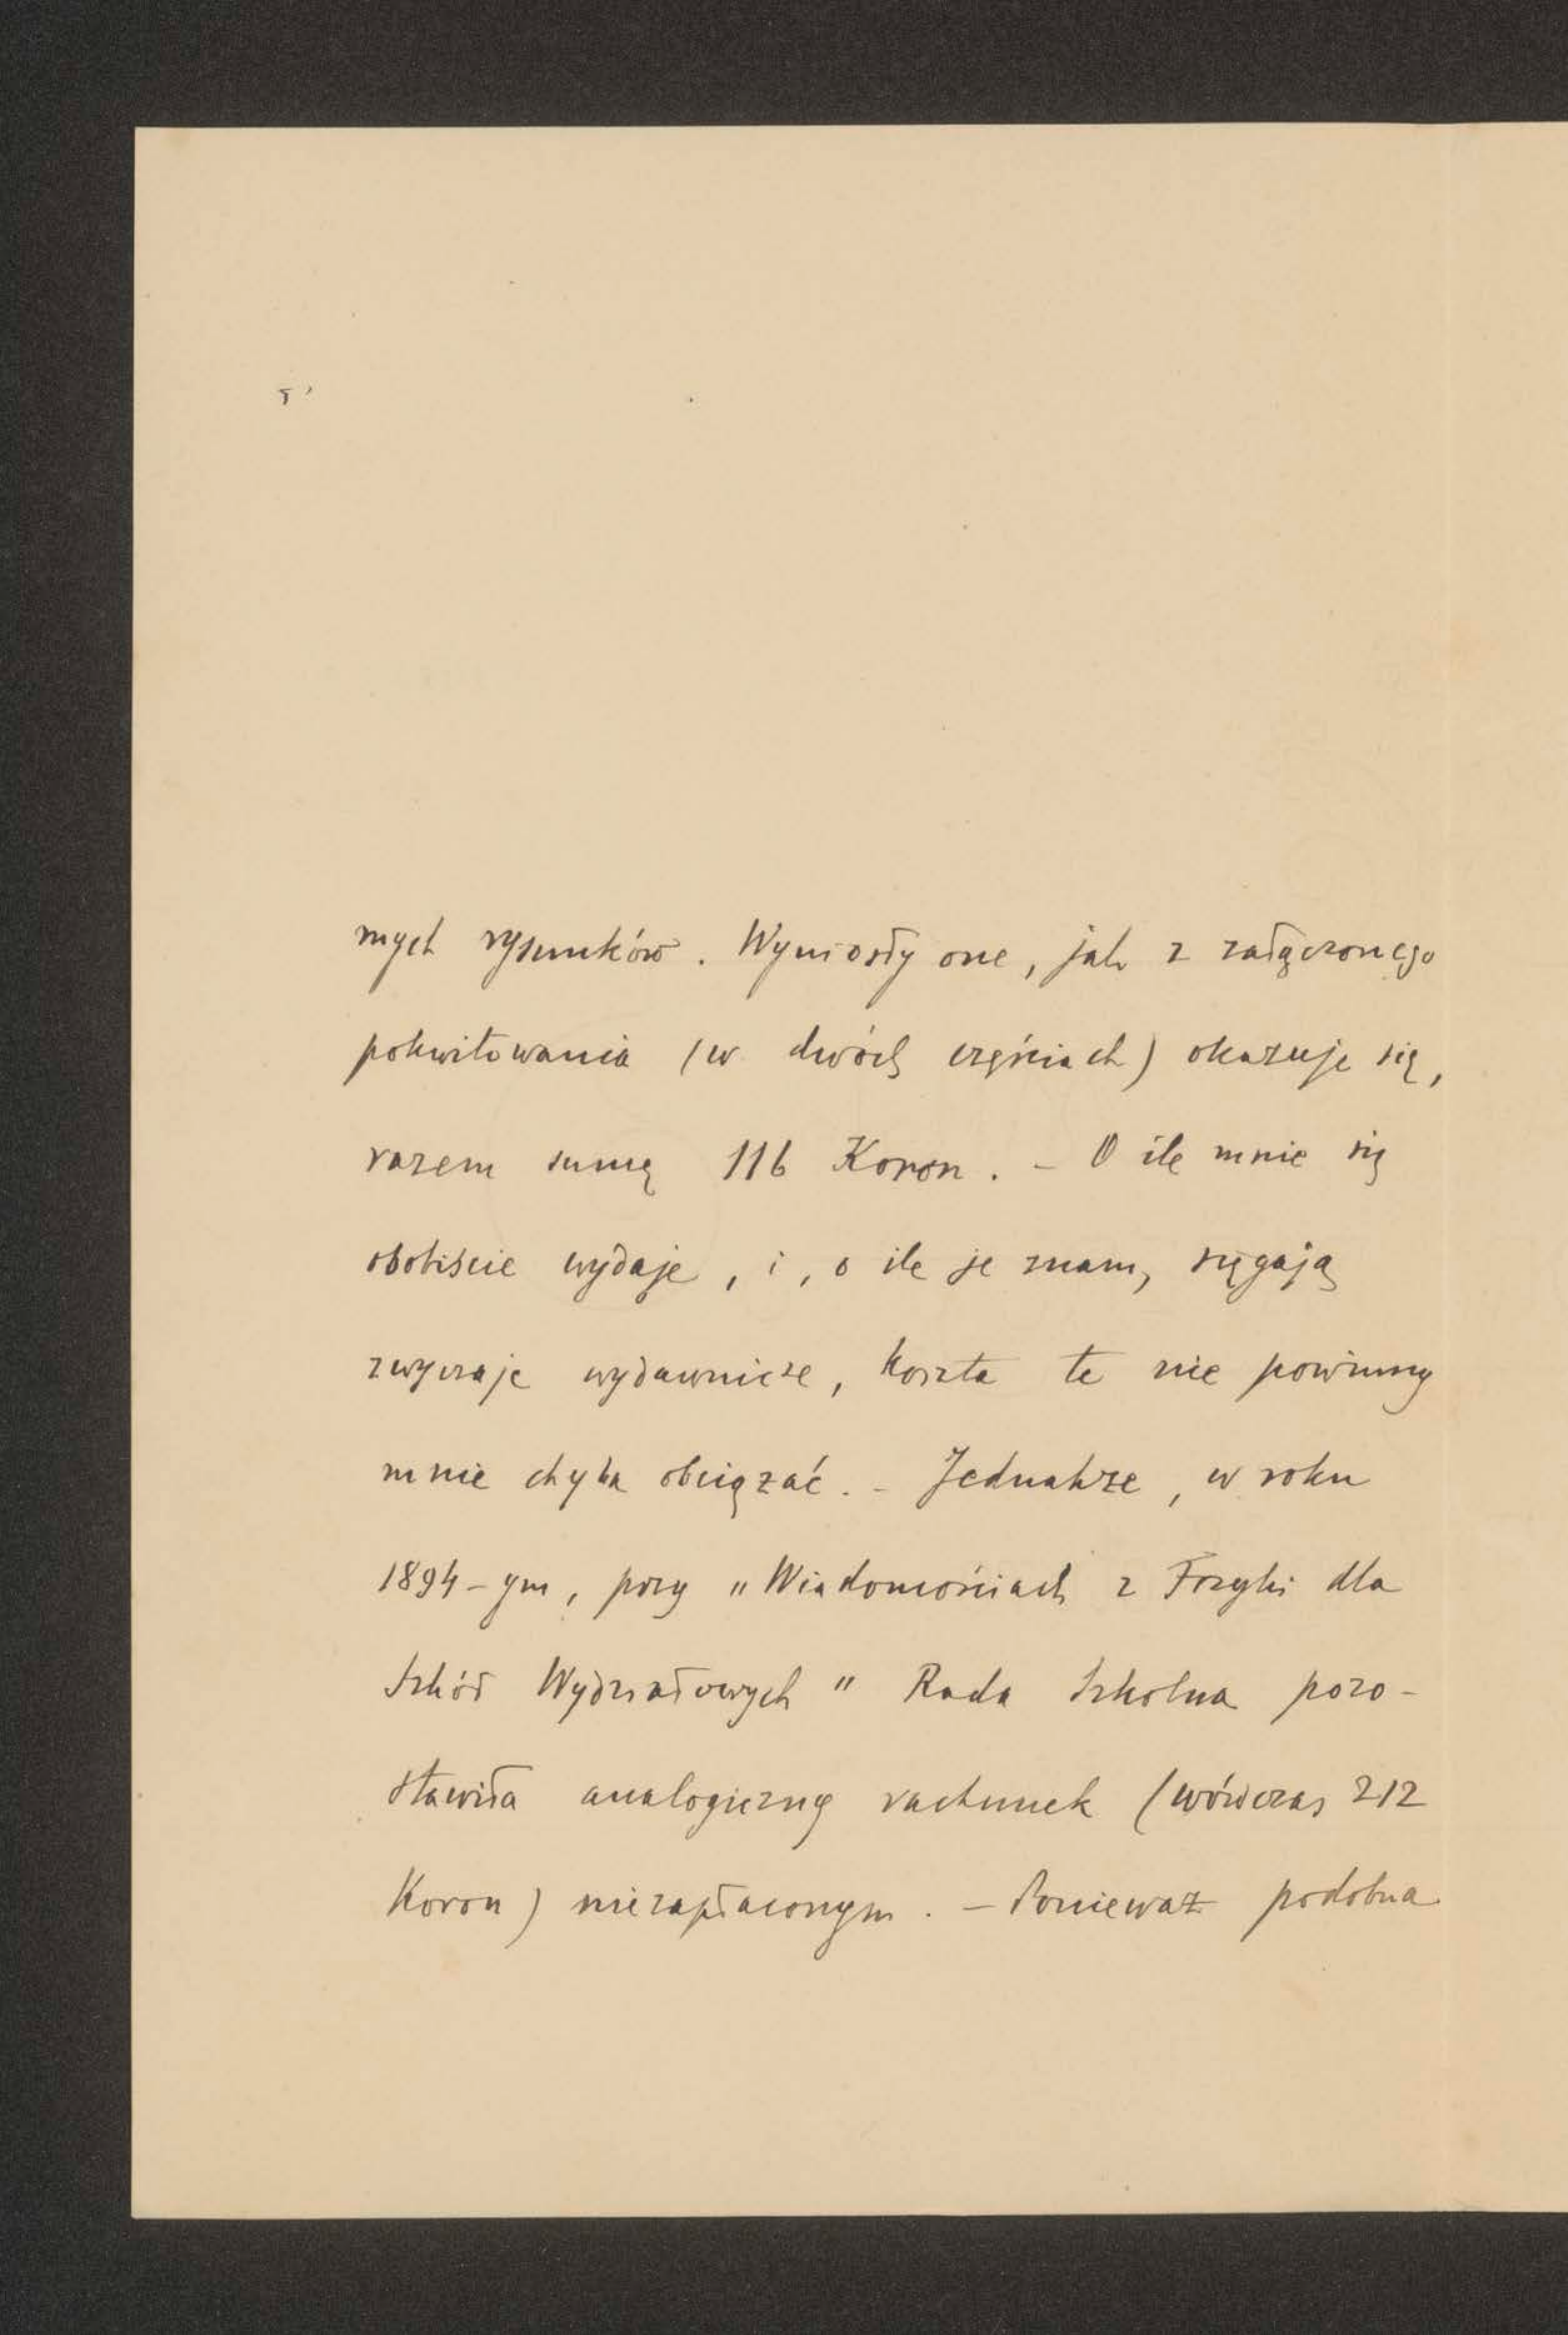 mych rysunków. Wyniosły one, jak z załączonego
pokwitowania (w dwóch częściach) okazuje się,
razem sumę 116 Koron. – O ile mnie się
osobiście wydaje, i, o ile je znam, sięgają
zwyczaje wydawnicze, koszta te nie powinny
mnie chyba obciążać. – Jednakże, w roku
1894-ym, przy „Wiadomościach z Fizyki dla
Szkół Wydziałowych" Rada Szkolna pozo-
stawiła analogiczny rachunek (wówczas 212
Koron) niezapłaconym. – Ponieważ podobna